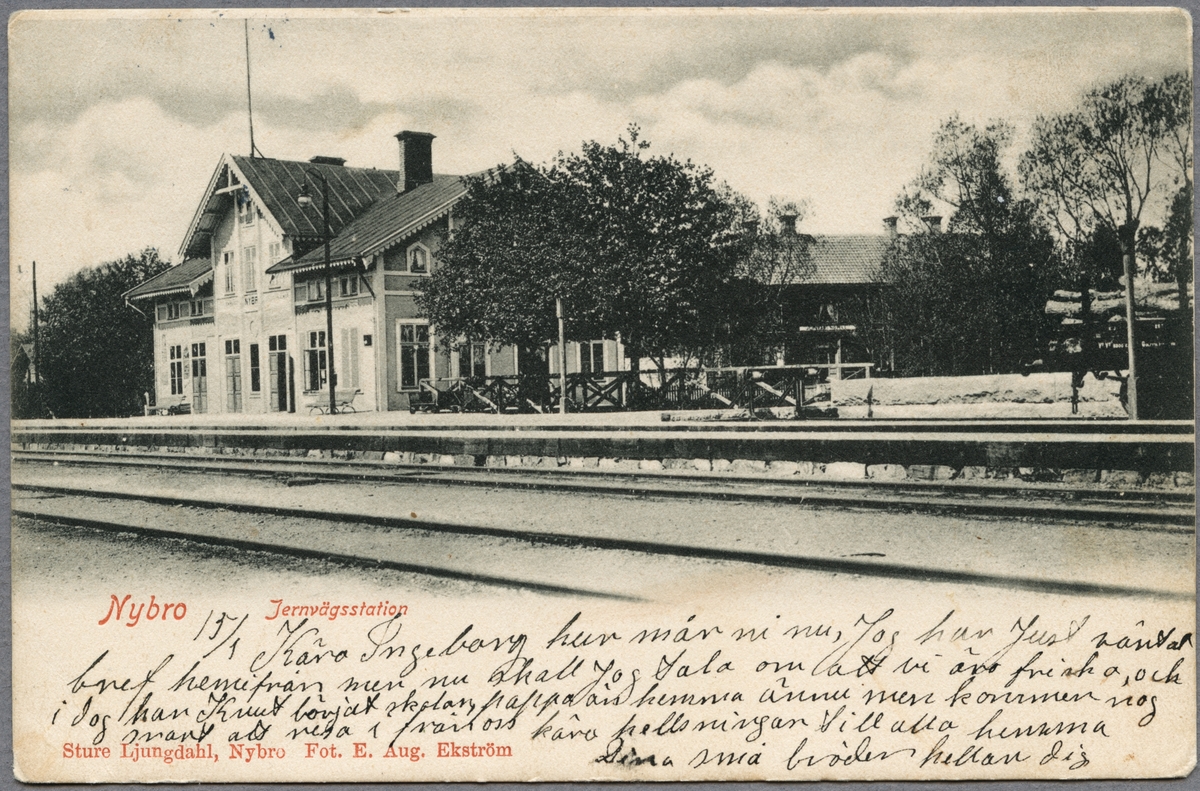 NYBR
Nybro Jernvägsstation
15/1 Kära Ingeborg hur mår ni nu, Jog har Just väntat
bref hemifrån men nu skall Jog tala om att vi äro friska, och
i dog har Knut börjat skolan, pappa är hemma ännu men kommer nog
snart att resa ifrån oss kära hellsningar till alla hemma
Dina små bröder hellsar dig
Sture Ljungdahl, Nybro Fot. E. Aug. Ekström